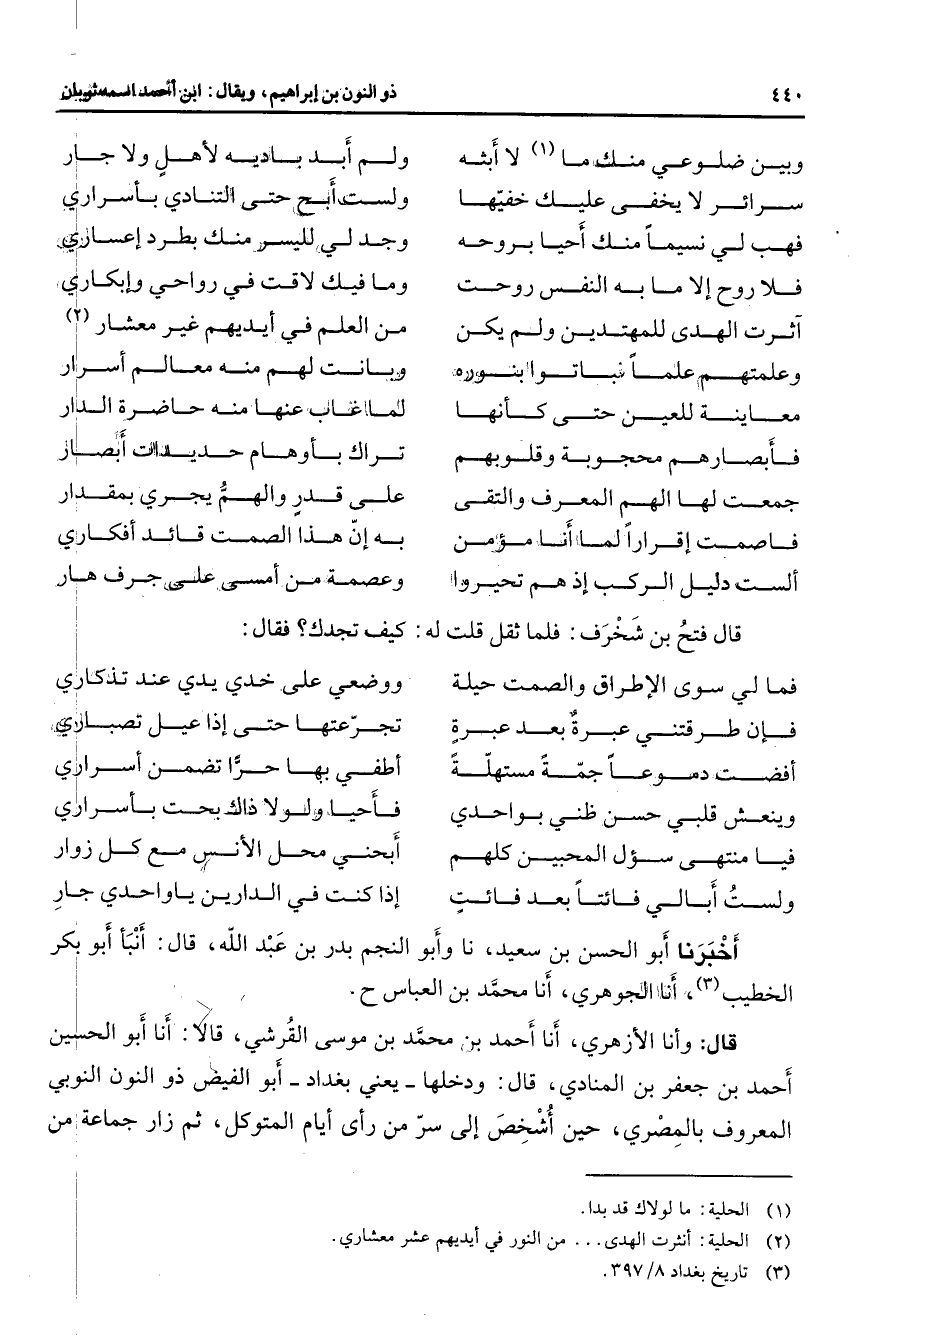 ٤٤٠ ذو النون بن إبراهيم، ويقال: ابن أحمد
وبين ضلوعي منك ما (١) لا أبثه ولم أبد باديه لأهلٍ ولا جار
سرائر لا يخفى عليك خفيّها ولست أبح حتى التنادي بأسراري
فهب لي نسيماً منك أحيا بروحه وجد لي لليسر منك بطرد إعساري
فلا روح إلا ما به النفس روحت وما فيك لاقت في رواحي وإبكاري
آثرت الهدى للمهتدين ولم يكن من العلم في أيديهم غير معشار (٢)
وعلمتهم علماً فباتوا بنوره وبانت لهم منه معالم أسرار
معاينة للعين حتى كأنها لما غاب عنها منه حاضرة الدار
فأبصارهم محجوبة وقلوبهم تراك بأوهام حديدات أبصار
جمعت لها الهم المعرف والتقى على قدرٍ والهمُّ يجري بمقدار
فاصمت إقراراً لما أنا مؤمن به إنّ هذا الصمت قائد أفكاري
ألست دليل الركب إذ هم تحيروا وعصمة من أمسى على جرف هار
قال فتحُ بن شَخْرَف: فلما ثقل قلت له: كيف تجدك؟ فقال:
فما لي سوى الإطراق والصمت حيلة ووضعي على خدي يدي عند تذكاري
فإن طرقتني عبرةٌ بعد عبرةٍ تجرّعتها حتى إذا عيل تصباري
أفضت دموعاً جمّةً مستهلّةً أطفي بها حرًّا تضمن أسراري
وينعش قلبي حسن ظني بواحدي فأحيا ولولا ذاك بحت بأسراري
فيا منتهى سؤل المحبين كلهم أبحني محل الأنس مع كل زوار
ولستُ أبالي فائتاً بعد فائتٍ إذا كنت في الدارين يا واحدي جارِ
أَخْبَرَنا أبو الحسن بن سعيد، نا وأبو النجم بدر بن عَبْد الله، قال: أَنْبَأ أبو بكر
الخطيب(٣)، أَنا الجوهري، أَنا محمَّد بن العباس ح.
قال: وأنا الأزهري، أَنا أحمد بن محمَّد بن موسى القُرشي، قالا: أنا أبو الحسين
أَحمد بن جعفر بن المنادي، قال: ودخلها ـ يعني بغداد ـ أبو الفيض ذو النون النوبي
المعروف بالمصْري، حين أُشْخصَ إلى سرّ من رأى أيام المتوكل، ثم زار جماعة من
(١) الحلية: ما لولاك قد بدا.
(٢) الحلية: أنثرت الهدى... من النور في أيديهم عشر معشاري.
(٣) تاريخ بغداد ٨/ ٣٩٧.